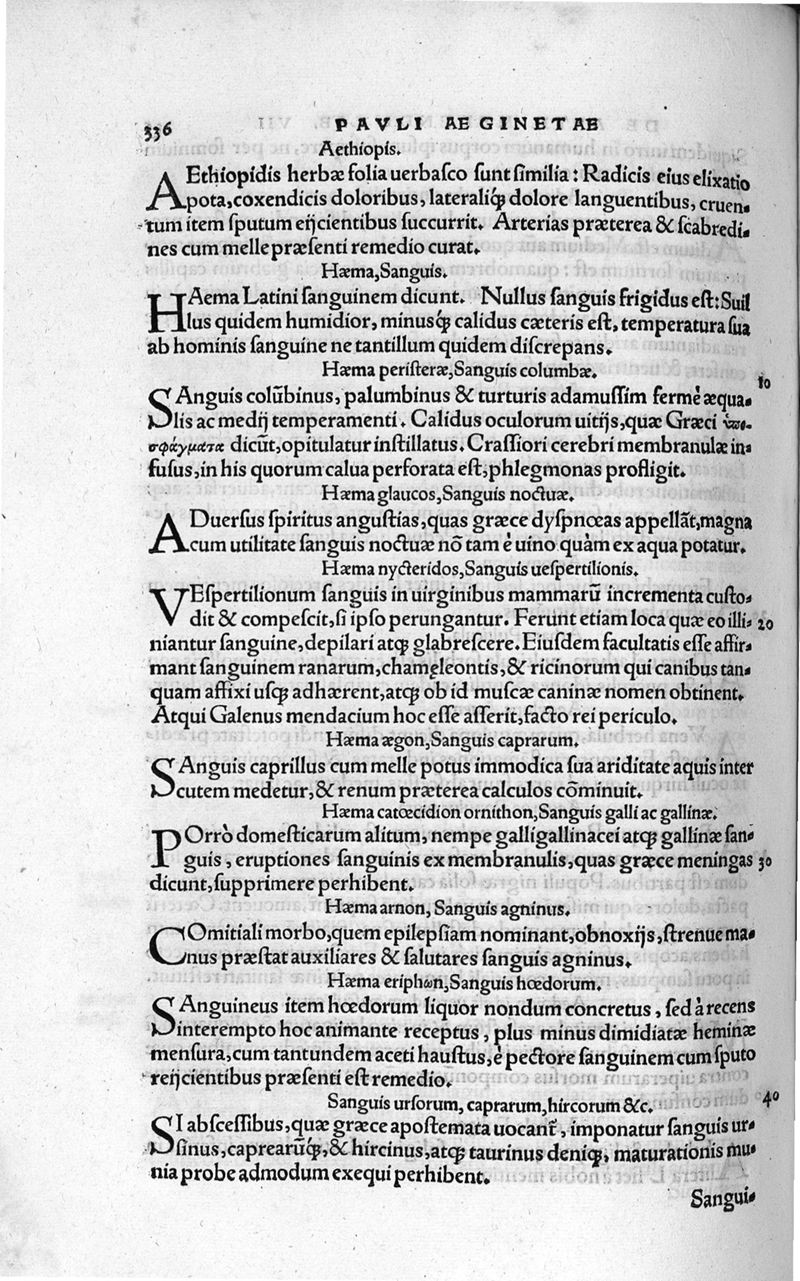 336 PAVLI AEGINETAE
Aethiopis.
AEthiopidis herbæ folia uerbasco sunt similia: Radicis eius elixatio
pota, coxendicis doloribus, lateraliq́ꝫ dolore languentibus, cruen-
tum item sputum eijcientibus succurrit. Arterias præterea & scabredi-
nes cum melle præsenti remedio curat.
Hæma, Sanguis.
HAema Latini sanguinem dicunt. Nullus sanguis frigidus est: Suil
lus quidem humidior, minusq́ꝫ calidus cæteris est, temperatura sua
ab hominis sanguine ne tantillum quidem discrepans.
Hæma peristeræ, Sanguis columbæ.
10
SAnguis colũbinus, palumbinus & turturis adamussim fermè æqua-
lis ac medij temperamenti. Calidus oculorum uitijs, quæ Græci ὑπο-
σφάγματα dicũt, opitulatur instillatus. Crassiori cerebri membranulæ in-
fusus, in his quorum calua perforata est, phlegmonas profligit.
Hæma glaucos, Sanguis noctuæ.
ADuersus spiritus angustias, quas græce dyspnœas appellãt, magna
cum utilitate sanguis noctuæ nõ tam è uino quàm ex aqua potatur.
Hæma nycteridos, Sanguis uespertilionis.
VEspertilionum sanguis in uirginibus mammarũ incrementa custo-
dit & compescit, si ipso perungantur. Ferunt etiam loca quæ eo illi- 20
niantur sanguine, depilari atqꝫ glabrescere. Eiusdem facultatis esse affir-
mant sanguinem ranarum, chamęleontis, & ricinorum qui canibus tan-
quam affixi usqꝫ adhærent, atqꝫ ob id muscæ caninæ nomen obtinent.
Atqui Galenus mendacium hoc esse asserit, facto rei periculo.
Hæma ægon, Sanguis caprarum.
SAnguis caprillus cum melle potus immodica sua ariditate aquis inter
cutem medetur, & renum præterea calculos cõminuit.
Hæma catœcidion ornithon, Sanguis galli ac gallinæ.
POrrò domesticarum alitum, nempe galligallinacei atqꝫ gallinæ san-
guis, eruptiones sanguinis ex membranulis, quas græce meningas 30
dicunt, supprimere perhibent.
Hæma arnon, Sanguis agninus.
COmitiali morbo, quem epilepsiam nominant, obnoxijs, strenue ma-
nus præstat auxiliares & salutares sanguis agninus.
Hæma eriphωn, Sanguis hœdorum.
SAnguineus item hœdorum liquor nondum concretus, sed à recens
interempto hoc animante receptus, plus minus dimidiatæ heminæ
mensura, cum tantundem aceti haustus, è pectore sanguinem cum sputo
reijcientibus præsenti est remedio.
Sanguis ursorum, caprarum, hircorum &c. 40
SI abscessibus, quæ græce apostemata uocant̃, imponatur sanguis ur-
sinus, caprearũq́ꝫ, & hircinus, atqꝫ taurinus deniqꝫ, maturationis mu-
nia probe admodum exequi perhibent.
Sangui-